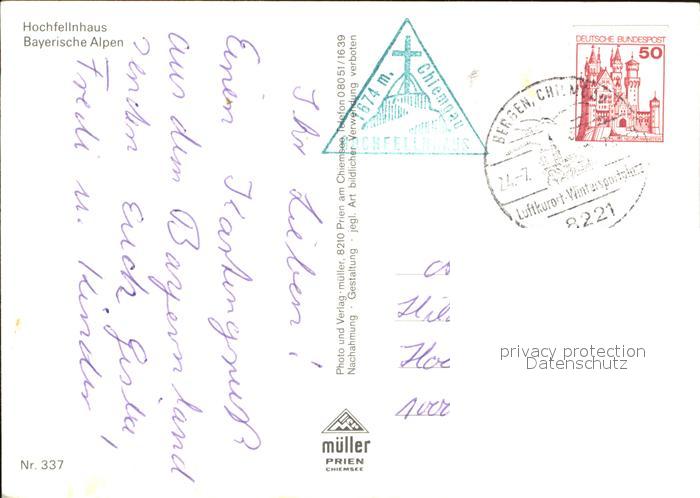 Hochfellnhaus
Bayerische Alpen
Ihr Lieben!
Einen Kartengruß
aus dem Bayernland
senden Euch Gisela,
Fredi u. Kinder
Nr. 337
Photo und Verlag: müller, 8210 Prien am Chiemsee, Telefon 08051/1639
Nachahmung · Gestaltung · jegl. Art bildlicher Verwendung verboten
müller
PRIEN
CHIEMSEE
1674 m.
Chiemgau
HOCHFELLNHAUS
DEUTSCHE BUNDESPOST
50
BERGEN, CHIEMGAU
24.-7.
Luftkurort-Wintersportplatz
8221
Hil
Hoc
1000
privacy protection
Datenschutz